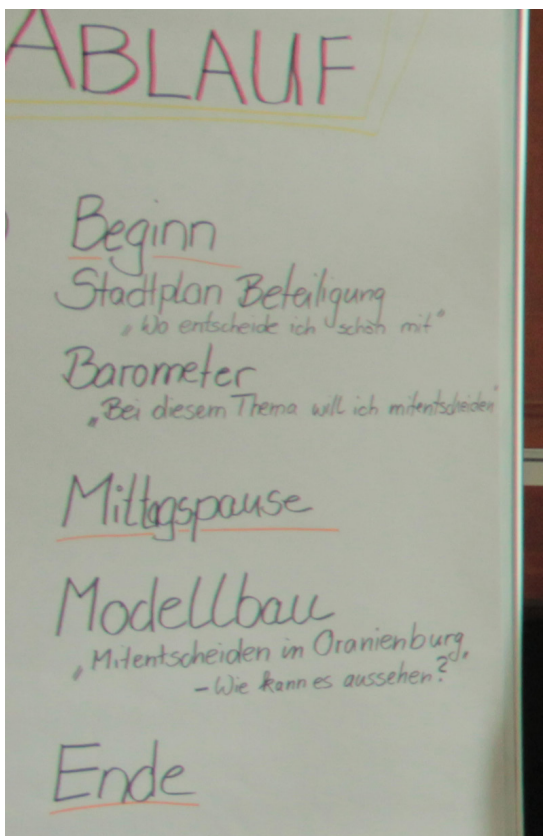 ABLAUF
Beginn
Stadtplan Beteiligung
„Wo entscheide ich schon mit"
Barometer
„Bei diesem Thema will ich mitentscheiden"
Mittagspause
Modellbau
„Mitentscheiden in Oranienburg"
- Wie kann es aussehen?
Ende